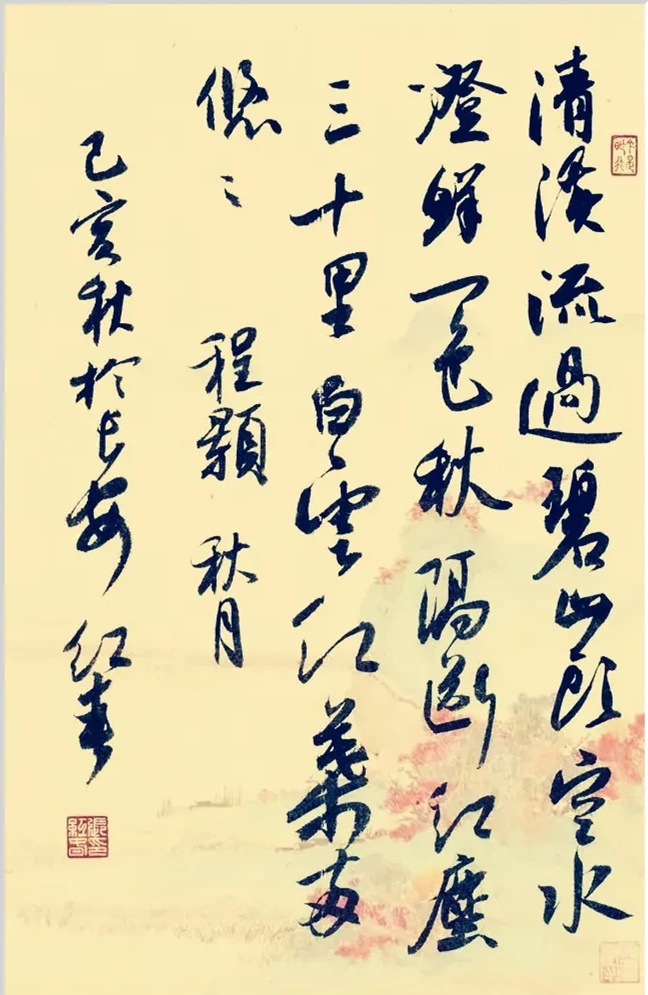 清溪流過碧山頭空水
澄鮮一色秋隔斷紅塵
三十里白雲紅葉兩
悠〻 程顥 秋月
己亥秋於長安 紅